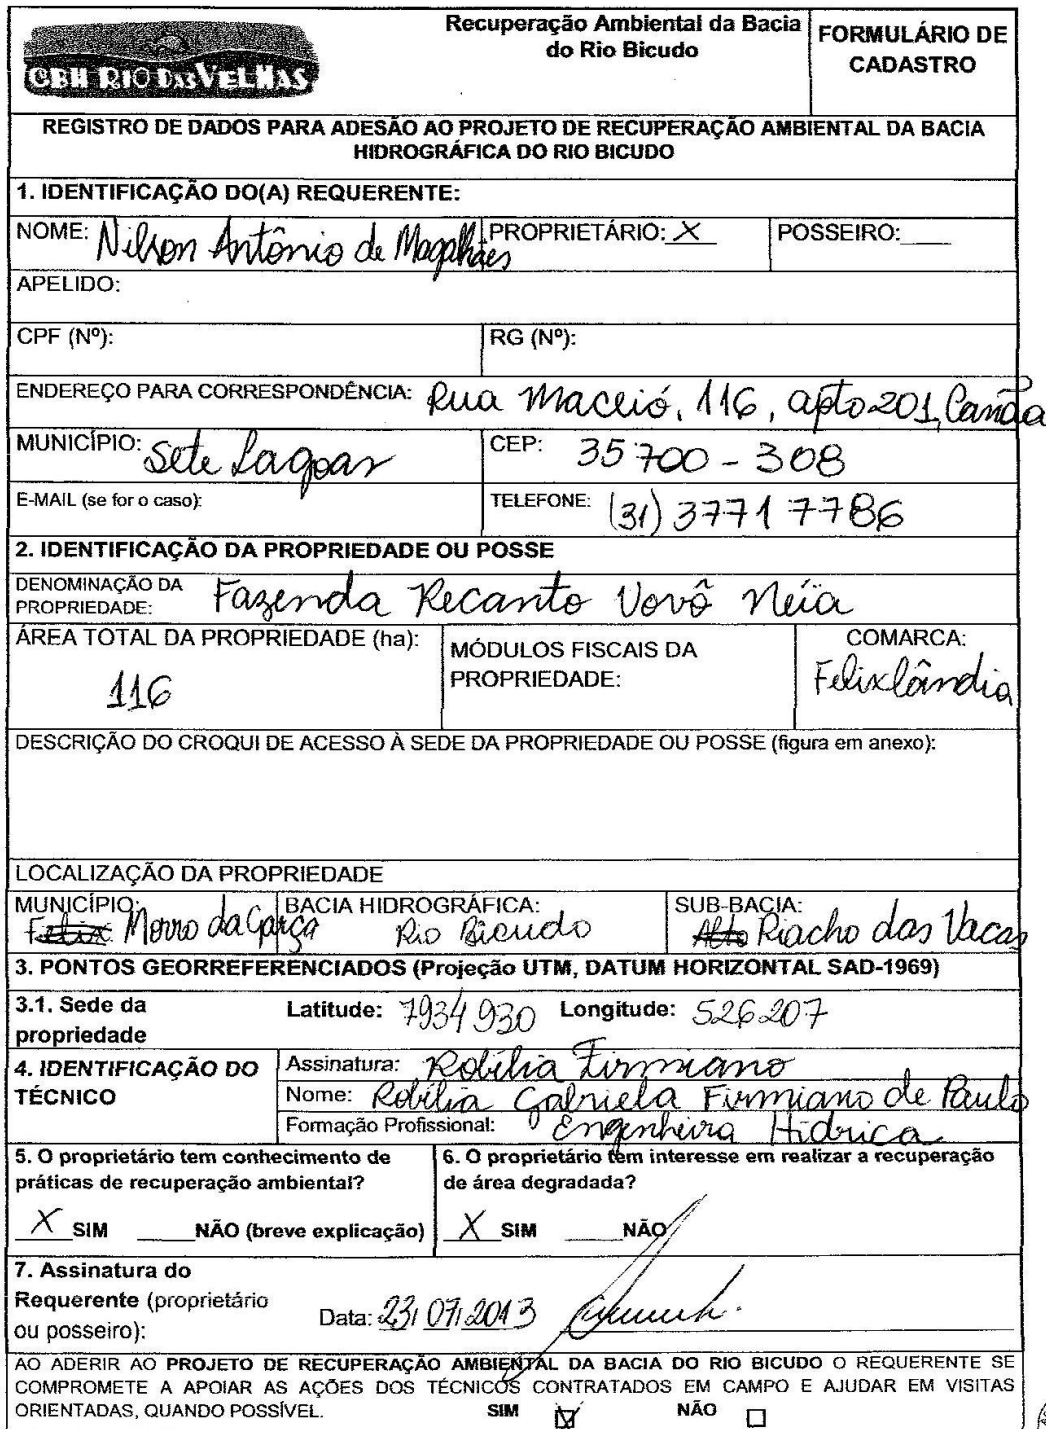 CBH RIO DAS VELHAS
Recuperação Ambiental da Bacia
do Rio Bicudo
FORMULÁRIO DE
CADASTRO
REGISTRO DE DADOS PARA ADESÃO AO PROJETO DE RECUPERAÇÃO AMBIENTAL DA BACIA
HIDROGRÁFICA DO RIO BICUDO
1. IDENTIFICAÇÃO DO(A) REQUERENTE:
NOME: Nilson Antônio de Magalhães PROPRIETÁRIO: X POSSEIRO:___
APELIDO:
CPF (Nº): RG (Nº):
ENDEREÇO PARA CORRESPONDÊNCIA: Rua Maceió, 116, apto 201, Canãa
MUNICÍPIO: Sete Lagoas CEP: 35700-308
E-MAIL (se for o caso): TELEFONE: (31) 3771 7786
2. IDENTIFICAÇÃO DA PROPRIEDADE OU POSSE
DENOMINAÇÃO DA
PROPRIEDADE: Fazenda Recanto Vovô Néia
ÁREA TOTAL DA PROPRIEDADE (ha):
116
MÓDULOS FISCAIS DA
PROPRIEDADE:
COMARCA:
Felixlândia
DESCRIÇÃO DO CROQUI DE ACESSO À SEDE DA PROPRIEDADE OU POSSE (figura em anexo):
LOCALIZAÇÃO DA PROPRIEDADE
MUNICÍPIO: Felix Morro da Garça
BACIA HIDROGRÁFICA:
Rio Bicudo
SUB-BACIA:
Alto Riacho das Vacas
3. PONTOS GEORREFERENCIADOS (Projeção UTM, DATUM HORIZONTAL SAD-1969)
3.1. Sede da
propriedade
Latitude: 7934930 Longitude: 526207
4. IDENTIFICAÇÃO DO
TÉCNICO
Assinatura: Robélia Firmiano
Nome: Robélia Gabriela Firmiano de Paulo
Formação Profissional: Engenheira Hídrica
5. O proprietário tem conhecimento de
práticas de recuperação ambiental?
X SIM ____NÃO (breve explicação)
6. O proprietário tem interesse em realizar a recuperação
de área degradada?
X SIM ____NÃO
7. Assinatura do
Requerente (proprietário
ou posseiro):
Data: 23/07/2013
AO ADERIR AO PROJETO DE RECUPERAÇÃO AMBIENTAL DA BACIA DO RIO BICUDO O REQUERENTE SE
COMPROMETE A APOIAR AS AÇÕES DOS TÉCNICOS CONTRATADOS EM CAMPO E AJUDAR EM VISITAS
ORIENTADAS, QUANDO POSSÍVEL. SIM ☑ NÃO ☐